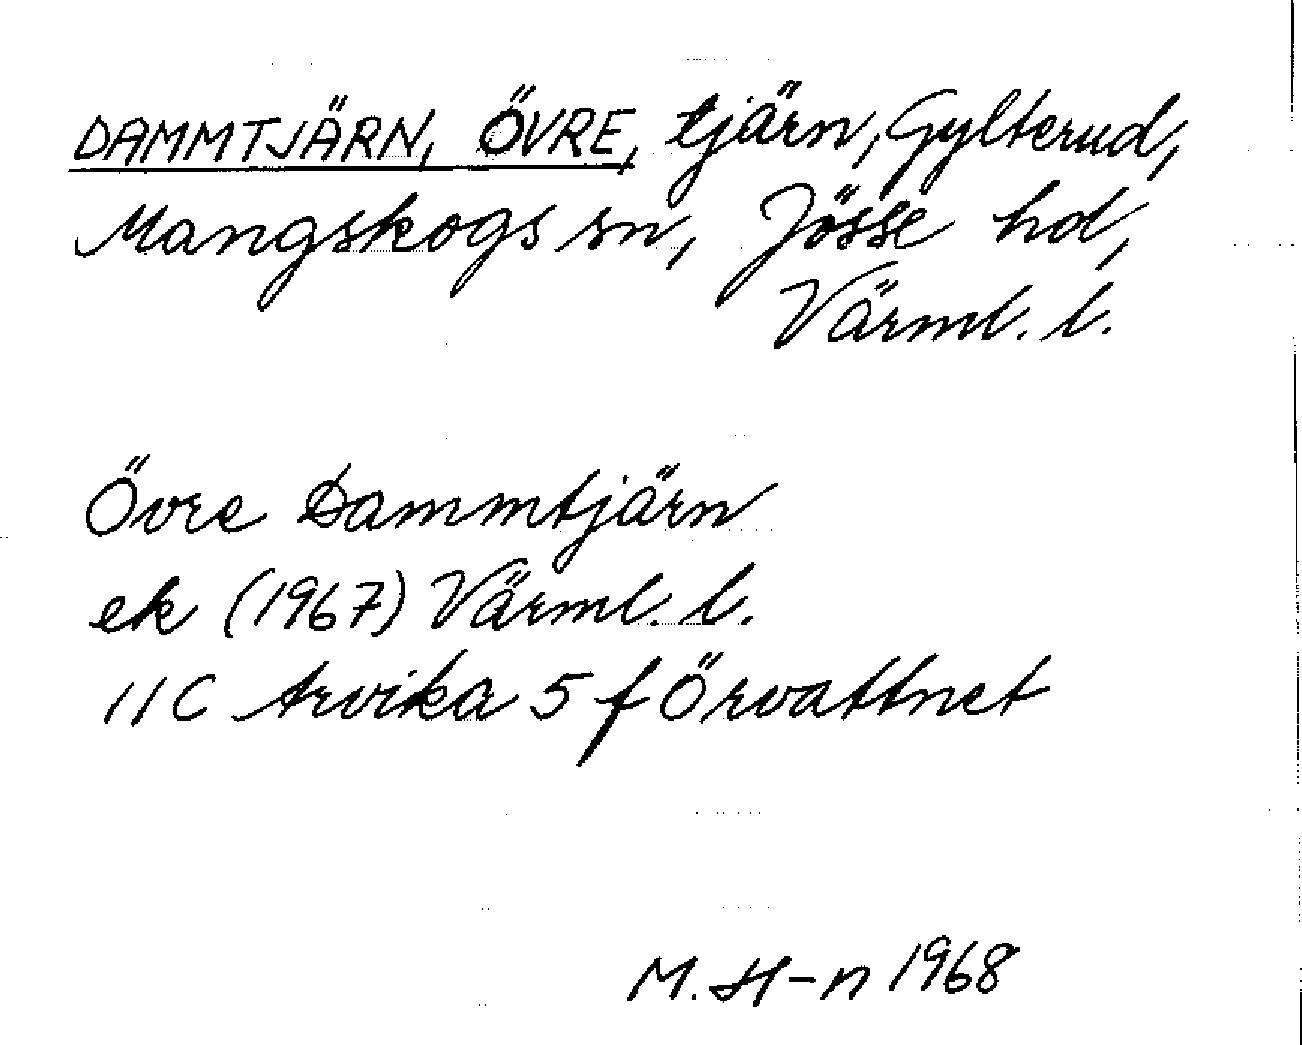 DAMMTJÄRN, ÖVRE, tjärn, Gylterud,
Mangskogs sn, Jösse hd,
Värml. l.
Övre Dammtjärn
ek (1967) Värml. l.
11C Arvika 5 f Örvattnet
M. H-n 1968